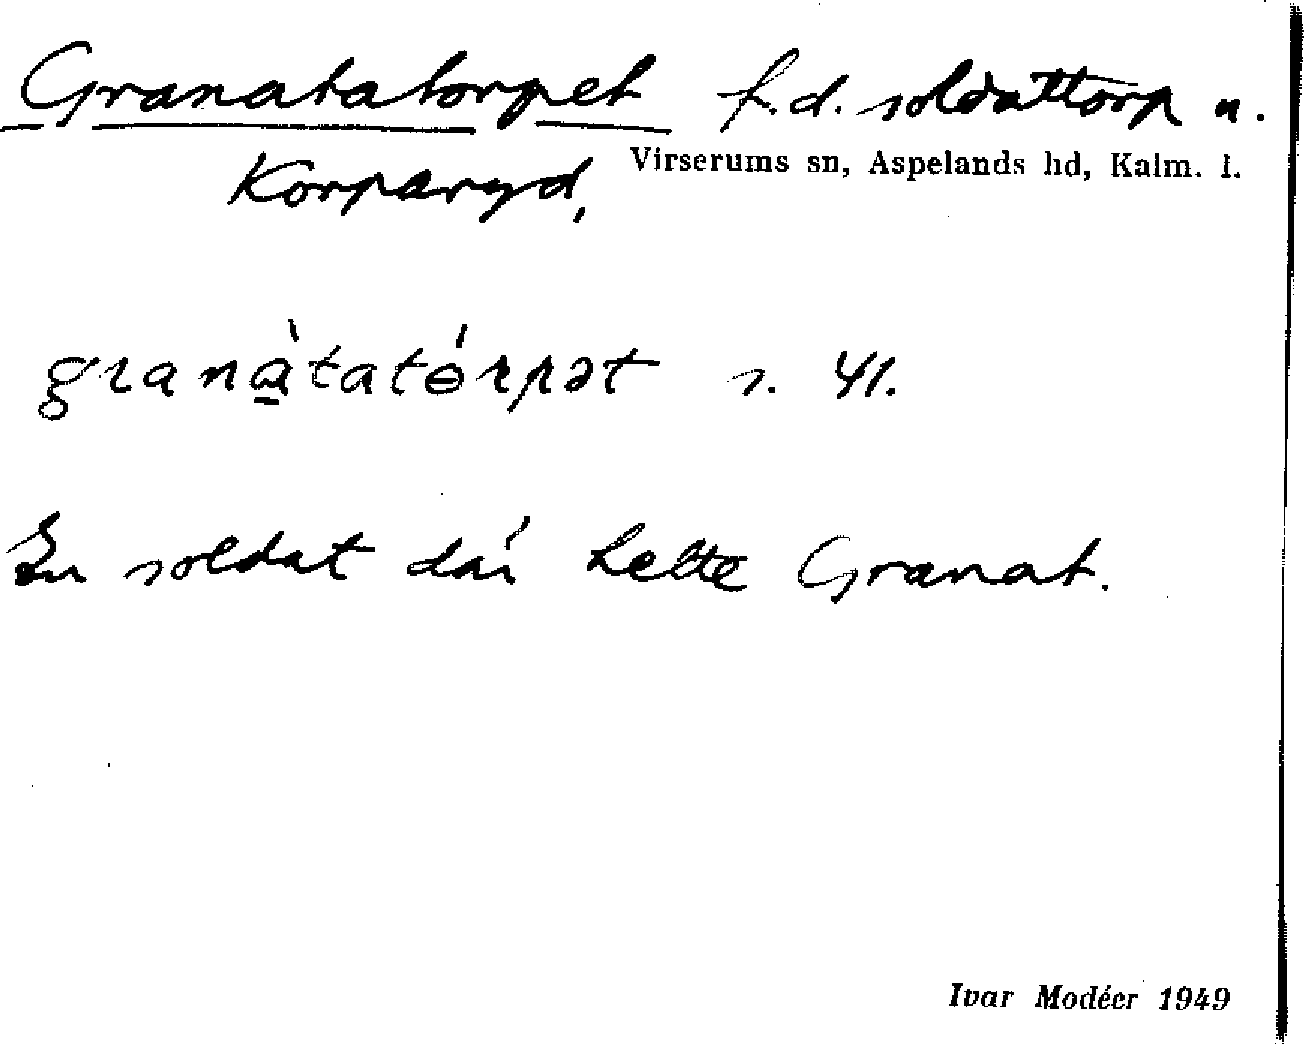 Granatatorpet f.d. soldattorp u.
Korparyd, Virserums sn, Aspelands hd, Kalm. l.
granàtatórpət s. 41.
En soldat där hette Granat.
Ivar Modéer 1949